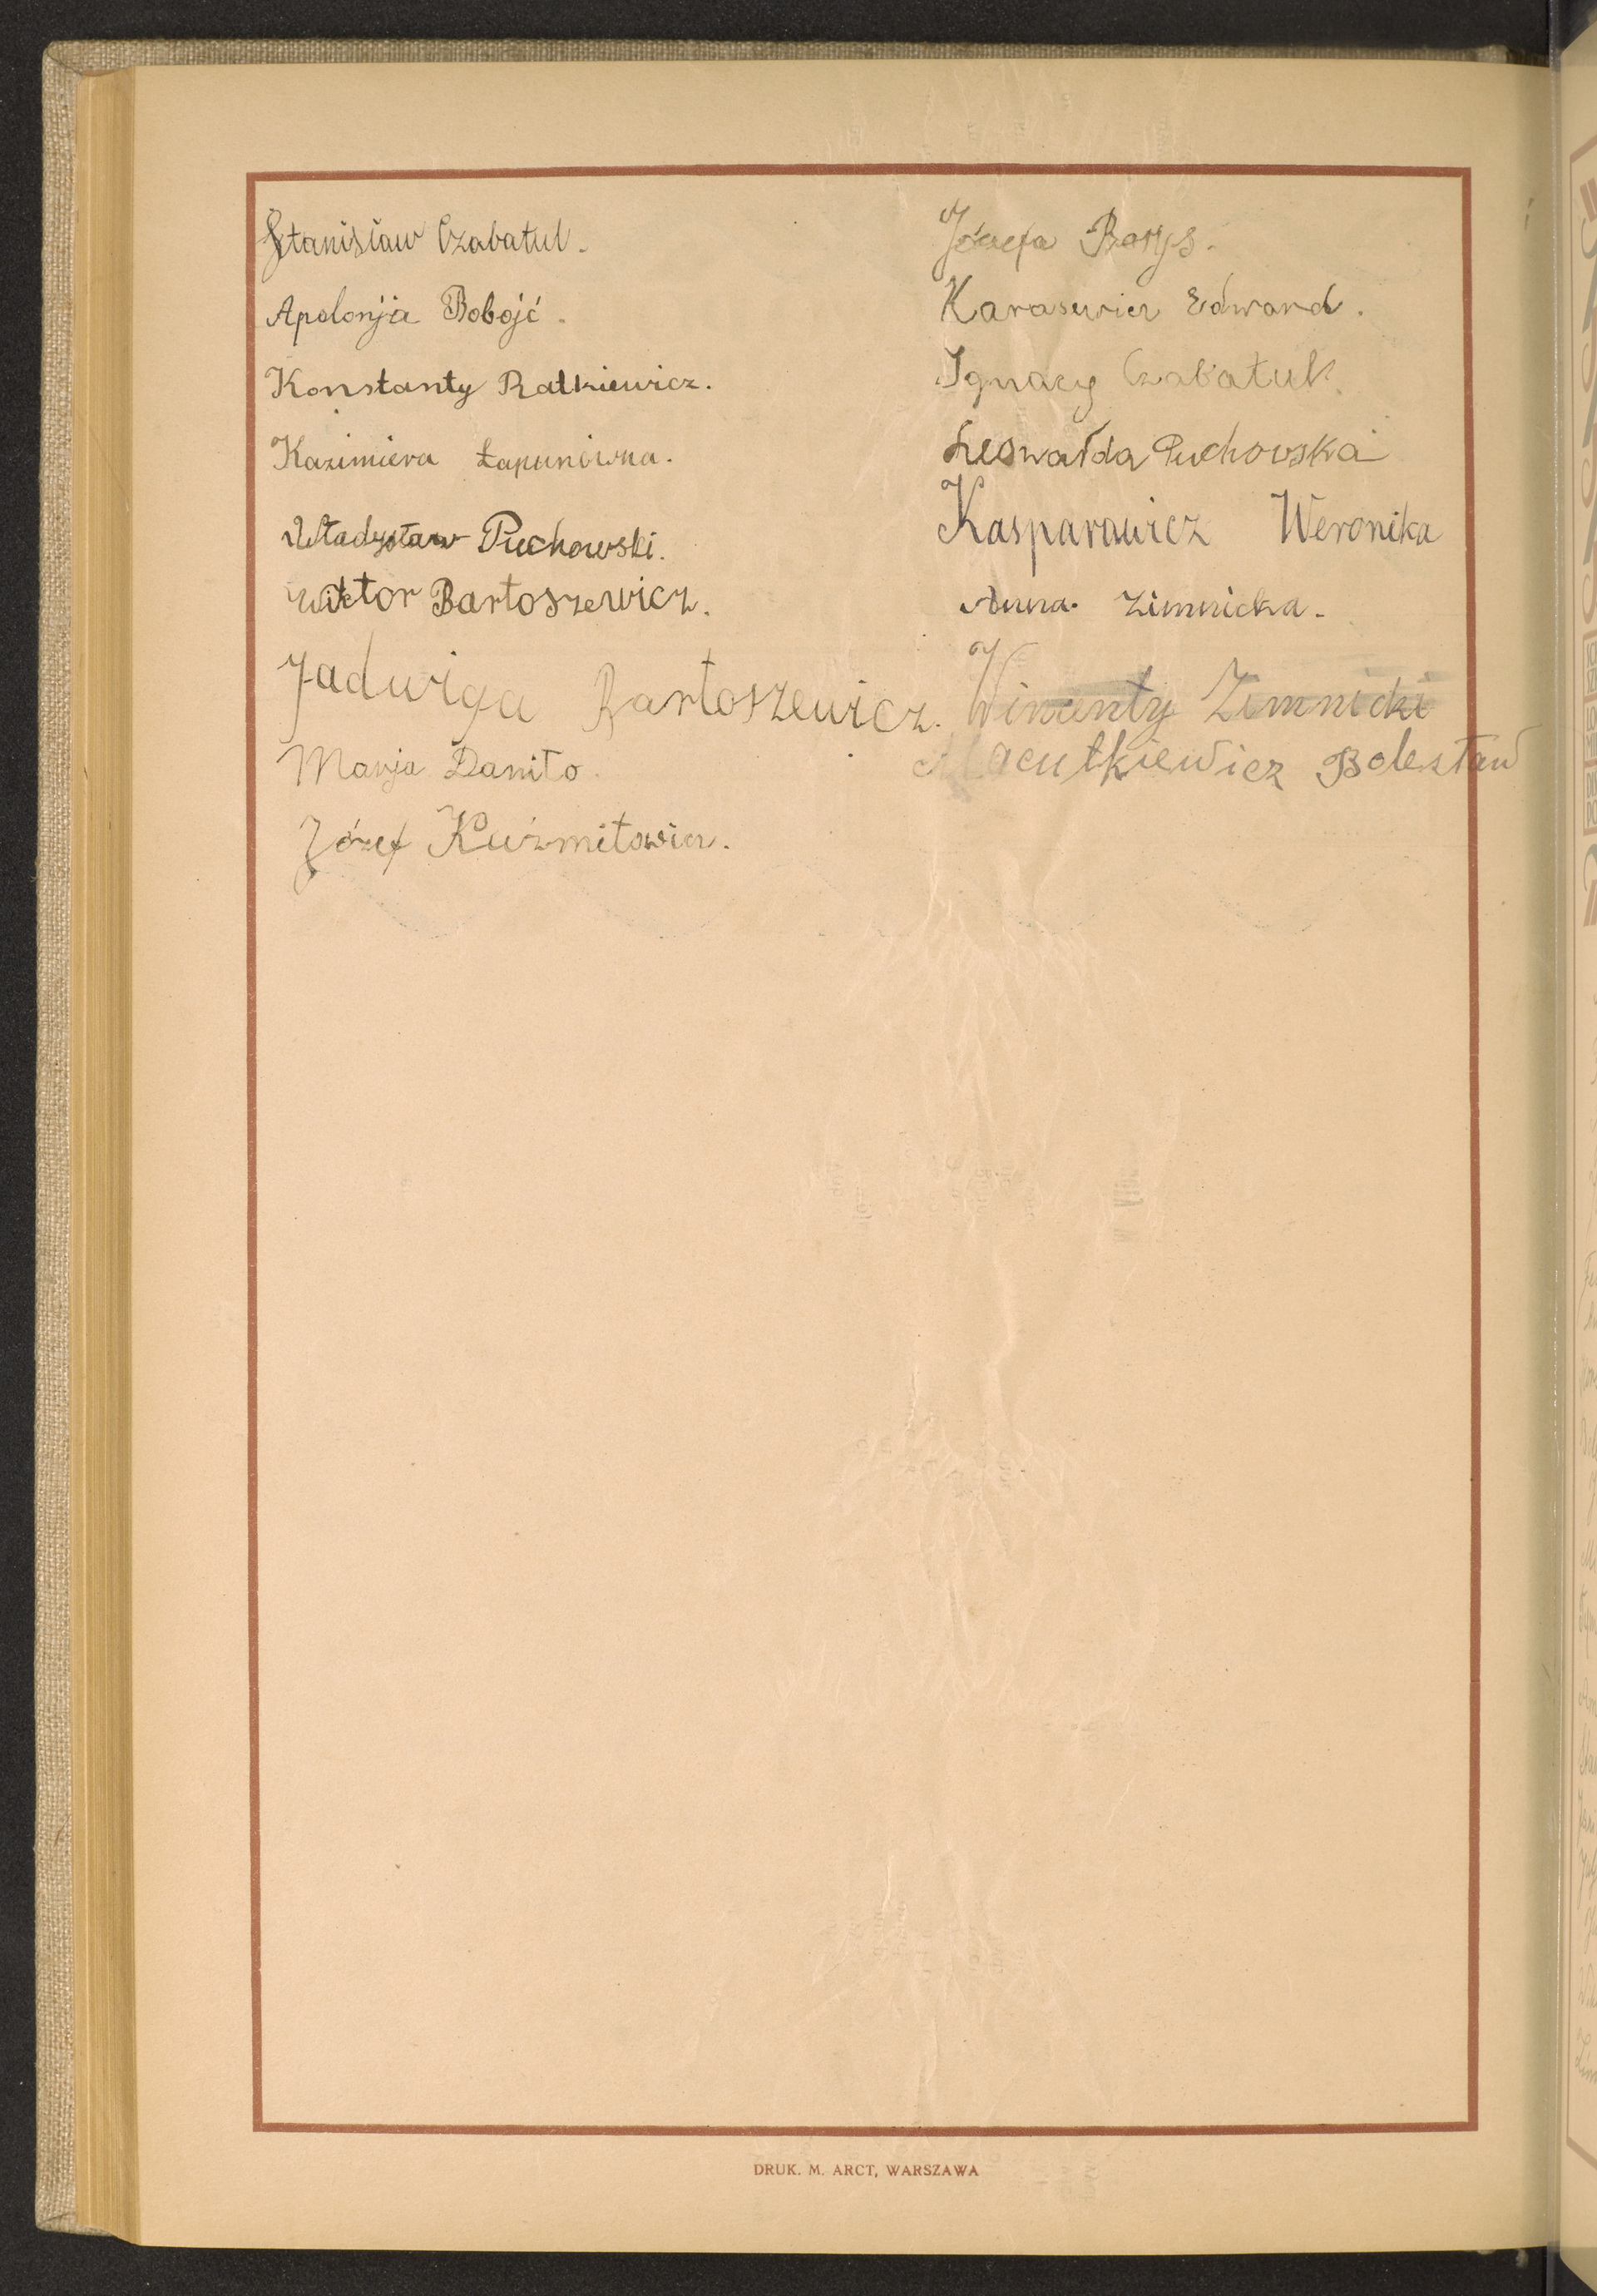 Stanisław Czabatul.
Apolonja Bobojć.
Konstanty Ratkiewicz.
Kazimiera Łapunówna.
Władysław Puchowski.
Wiktor Bartoszewicz.
Jadwiga Bartoszewicz.
Marja Daniło.
Józef Kuźmitowicz.
Józefa Borys.
Karasewicz Edward.
Ignacy Czabatuk
Leowałda Puchowska
Kasparawicz Weronika
Anna Zimnicka.
Wincenty Zimnicki
Macutkiewicz Bolesław
DRUK. M. ARCT, WARSZAWA